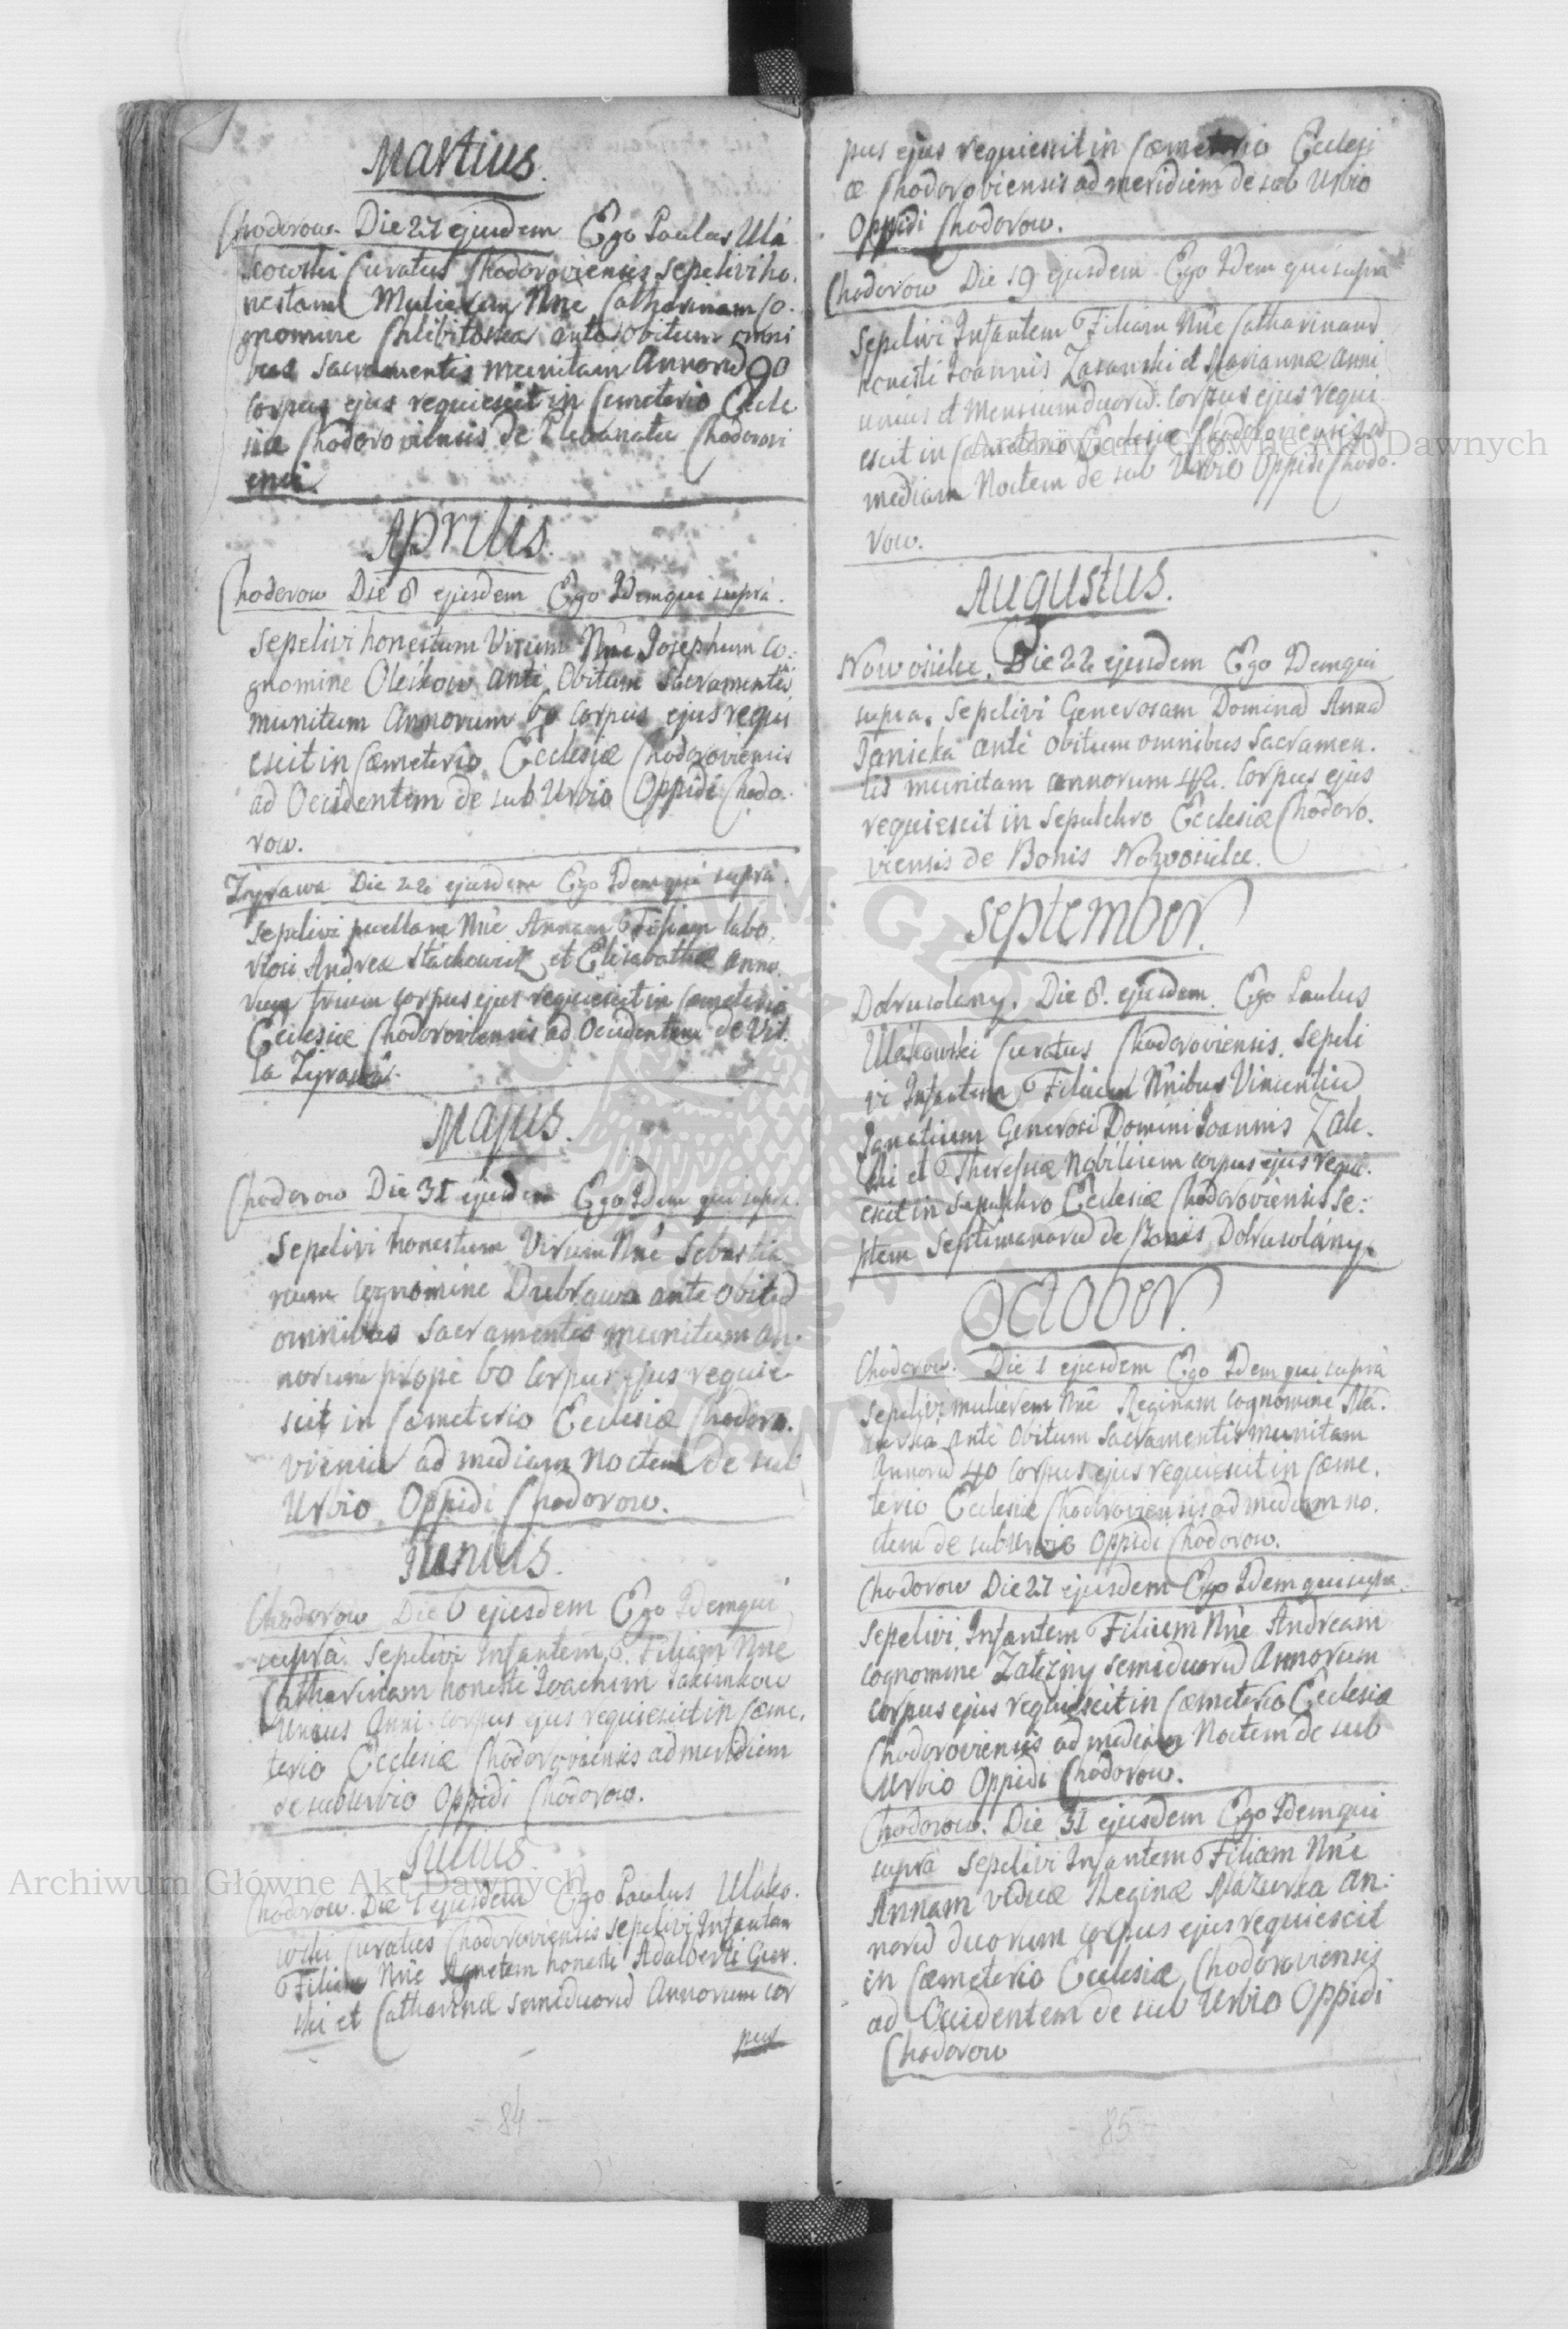 Martius.
Chodorow Die 27 ejusdem Ego Paulus Ula
kowski Curatus Chodoroviensis sepelivi ho.
nestam Mulierem Nne Catharinam co.
gnomine Chlebitoska ante obitum omni
bus Sacramentis munitam Annorũ 90
corpus ejus requiescit in Cemeterio Eccle
siæ Chodoroviensis de Plebanatu Chodorovi
ensi.
Aprilis.
Chodorow Die 8 ejusdem Ego Idem qui supra.
sepelivi honestum Virum Nne Josephum co:
gnomine Oleikow ante Obitum Sacramentis
munitum Annorum 60 corpus ejus requi
escit in Cæmeterio Ecclesiæ Chodoroviensis
ad Occidentem de sub Urbio Oppidi Chodo.
row.
Zyrawa Die 22 ejusdem Ego Idem qui supra.
sepelivi puellam Nne Annam Filiam labo.
riosi Andreæ Stackowicz et Elisabathæ anno.
rum trium corpus ejus requiescit in Cæmeterio
Ecclesiæ Chodoroviensis ad Occidentem de Vil.
la Zyrawa.
Majus.
Chodorow Die 31 ejusdem Ego Idem qui supra.
Sepelivi honestum Virum Nne Sebastia
num cognomine Dubrawa ante obitũ
omnibus Sacramentis munitum an.
norum prope 60 Corpus ejus requie
scit in Cæmeterio Ecclesiæ Chodoro.
viensis ad mediam Noctem de sub
Urbio Oppidi Chodorow.
Junius.
Chodorow Die 6 ejusdem Ego Idem qui
supra. sepelivi Infantem Filiam Nne
Catharinam honesti Joachim Jakimkow
Unius Anni corpus ejus requiescit in Cæme.
terio Ecclesiæ Chodoroviensis ad meridiem
de sub Urbio Oppidi Chodorow.
Julius.
Chodorow. Die 7 ejusdem Ego Paulus Ulako.
wski Curatus Chodoroviensis sepelivi Infantem
Filiam Nne Agnetem honesti Adalberti Gur.
ski et Catharinæ semiduorũ Annorum cor
pus
- 84 -
pus ejus requiescit in Cæmeterio Ecclesi
æ Chodoroviensis ad meridiem de sub Urbio
Oppidi Chodorow.
Chodorow Die 19 ejusdem Ego Idem qui supra
sepelivi Infantem Filiam Nne Catharinam
honesti Joannis Zasanski et Mariannæ anni
unius et Mensium duorũ. corpus ejus requi
escit in Cæmeterio Ecclesiæ Chodoroviensis ad
mediam Noctem de sub Urbio Oppidi Chodo.
row.
Augustus.
Nowosielce. Die 22 ejusdem Ego Idem qui
supra. sepelivi Generosam Dominã Annã
Janicka ante obitum omnibus Sacramen.
tis munitam annorum 42. Corpus ejus
requiescit in Sepulchro Ecclesiæ Chodoro.
viensis de Bonis Nowosielce.
September.
Dobrusolany. Die 8. ejusdem. Ego Paulus
Ulakowski Curatus Chodoroviensis. sepeli
vi Infantem Filium Nnibus Vincentiũ
Ignatium Generosi Domini Joannis Zale.
ski et Theresiæ Nobilium corpus ejus requi.
escit in Sepulchro Ecclesiæ Chodoroviensis Se:
ptem Septimanarũ de Bonis Dobrusolany.
October.
Chodorow. Die 1 ejusdem Ego Idem qui supra
sepelivi mulierem Nne Reginam cognomine
ante Obitum Sacramentis munitam
Annorũ 40 corpus ejus requiescit in Cæme.
terio Ecclesiæ Chodoroviensis ad mediam no.
ctem de sub Urbio Oppidi Chodorow.
Chodorow Die 27 ejusdem Ego Idem qui supra.
sepelivi Infantem Filium Nne Andream
cognomine Zalizny semiduorũ Annorum
corpus ejus requiescit in Cæmeterio Ecclesiæ
Chodoroviensis ad mediam Noctem de sub
Urbio Oppidi Chodorow.
Chodorow. Die 31 ejusdem Ego Idem qui
supra sepelivi Infantem Filiam Nne
Annam viduæ Reginæ Mazurka An:
norũ duorum corpus ejus requiescit
in Cæmeterio Ecclesiæ Chodoroviensis
ad Occidentem de sub Urbio Oppidi
Chodorow
- 85 -
Archiwum Główne Akt Dawnych
Archiwum Główne Akt Dawnych